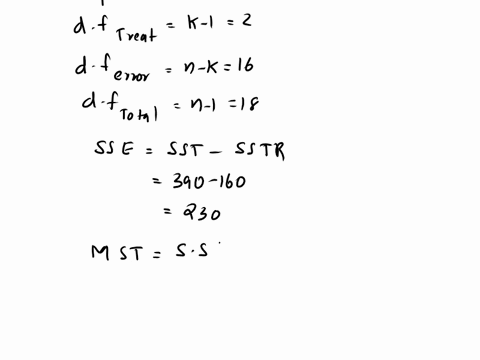 d.f Treat = k-1 = 2
d.f error = n-k = 16
d.f Total = n-1 = 18
SSE = SST - SSTR
= 390-160
= 230
MST = S.S